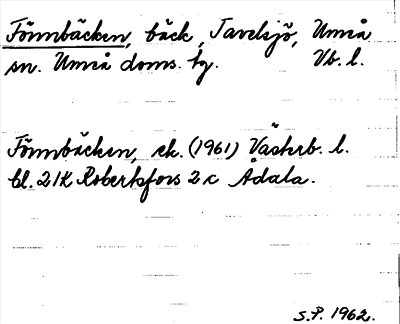 Fönnbäcken, bäck, Tavelsjö, Umeå
sn. Umeå doms. tg. Vb. l.
Fönnbäcken, ek. (1961) Västerb. l.
bl. 21K Robertsfors 2 c Ådala.
S.P. 1962.